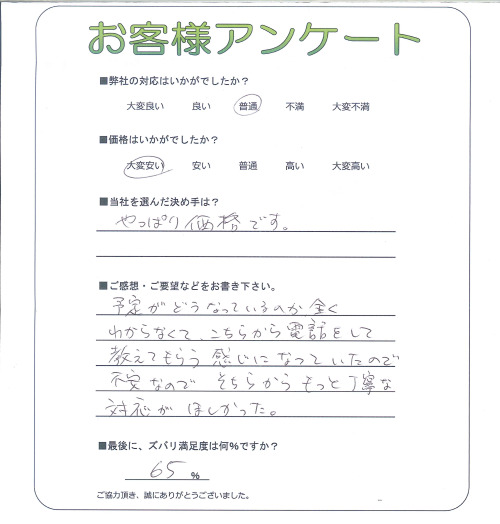 お客様アンケート
■弊社の対応はいかがでしたか？
大変良い 良い 普通 不満 大変不満
■価格はいかがでしたか？
大変安い 安い 普通 高い 大変高い
■当社を選んだ決め手は？
やっぱり価格です。
■ご感想・ご要望などをお書き下さい。
予定がどうなっているのか全く
わからなくて、こちらから電話をして
教えてもらう感じになっていたので
不安なので そちらからもっと丁寧な
対応がほしかった。
■最後に、ズバリ満足度は何%ですか？
65 %
ご協力頂き、誠にありがとうございました。